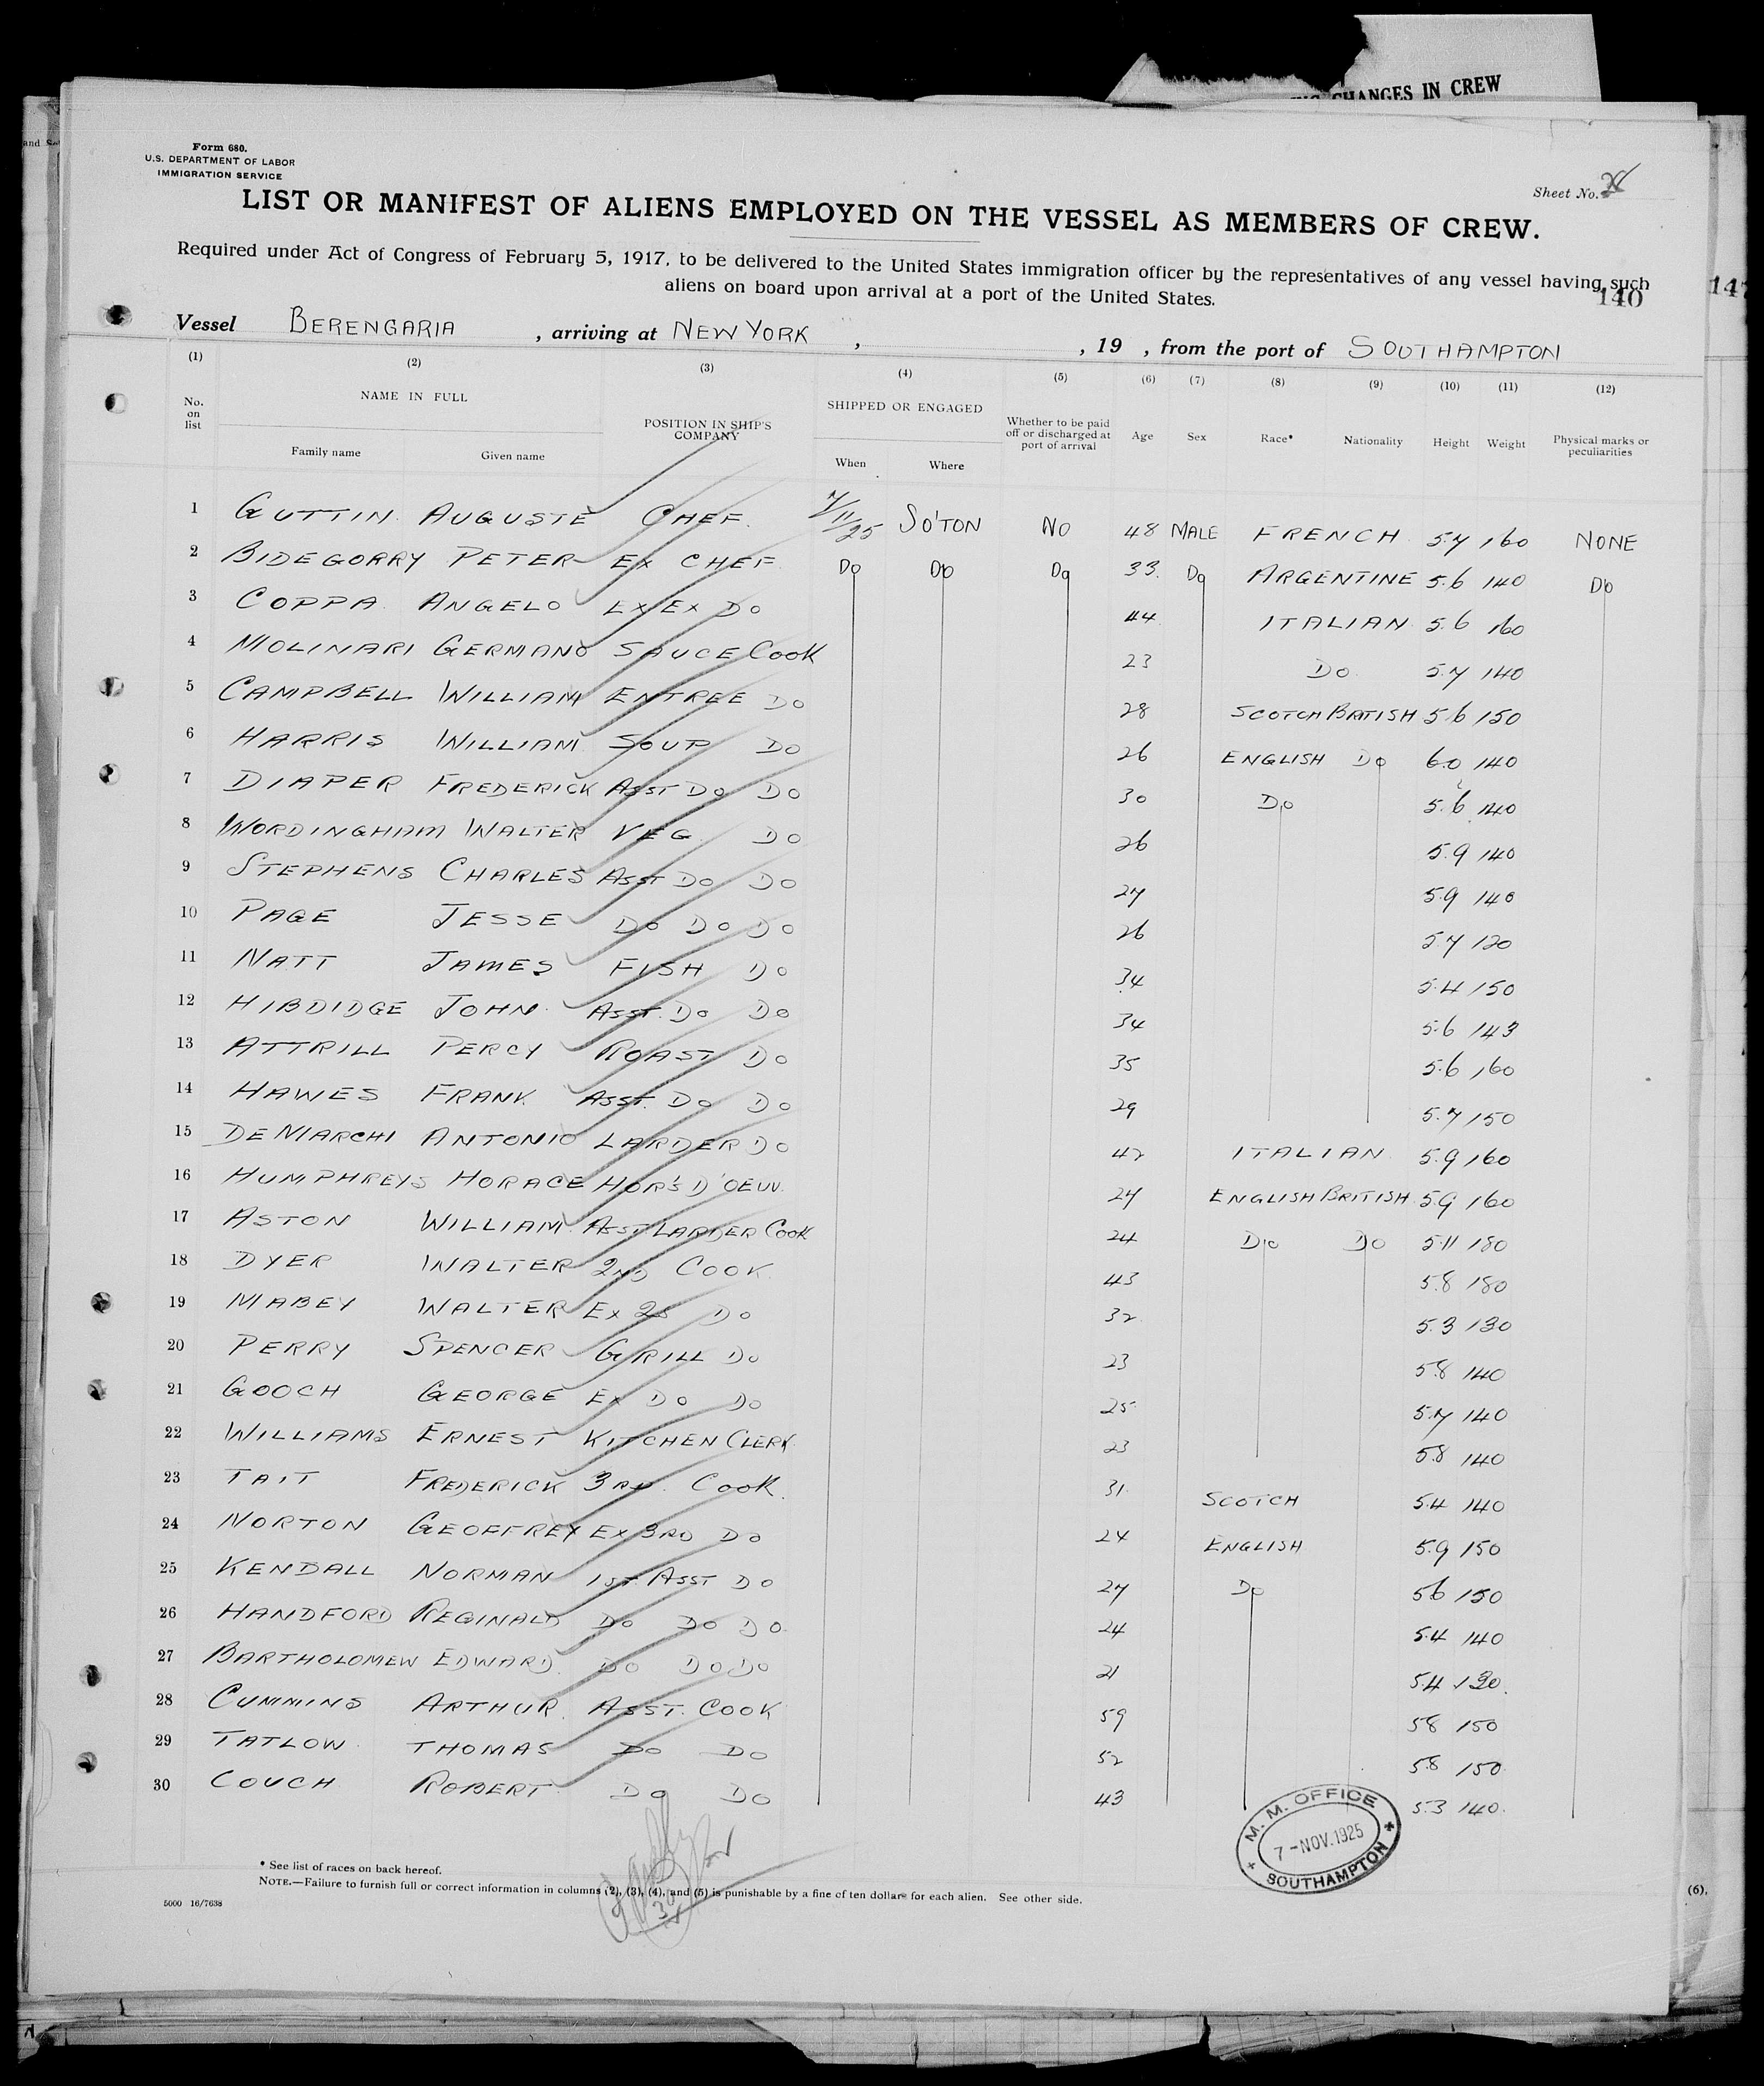 CHANGES IN CREW
Form 680.
U.S. DEPARTMENT OF LABOR
IMMIGRATION SERVICE
Sheet No.
LIST OR MANIFEST OF ALIENS EMPLOYED ON THE VESSEL AS MEMBERS OF CREW.
Required under Act of Congress of February 5, 1917, to be delivered to the United States immigration officer by the representatives of any vessel having such
aliens on board upon arrival at a port of the United States.
140
147
Vessel BERENGARIA , arriving at NEW YORK , , 19 , from the port of SOUTHAMPTON
(1) (2) (3) (4) (5) (6) (7) (8) (9) (10) (11) (12)
No. on list NAME IN FULL Family name Given name POSITION IN SHIP'S COMPANY SHIPPED OR ENGAGED When Where Whether to be paid off or discharged at port of arrival Age Sex Race* Nationality Height Weight Physical marks or peculiarities
1 GUTTIN AUGUSTE CHEF. 7/11/25 SO'TON NO 48 MALE FRENCH 5.7 160 NONE
2 BIDEGORRY PETER EX CHEF Do Do Do 33. Do ARGENTINE 5.6 140 Do
3 COPPA ANGELO EX EX DO 44 ITALIAN 5.6 160
4 MOLINARI GERMANO SAUCE COOK 23 DO 5.7 140
5 CAMPBELL WILLIAM ENTREE DO 28 SCOTCH BRITISH 5.6 150
6 HARRIS WILLIAM SOUP DO 26 ENGLISH DO 6.0 140
7 DIAPER FREDERICK ASST DO DO 30 DO 5.6 140
8 WORDINGHAM WALTER VEG DO 26 5.9 140
9 STEPHENS CHARLES ASST DO DO 27 5.9 140
10 PAGE JESSE DO DO DO 26 5.7 120
11 NATT JAMES FISH DO 34 5.4 150
12 HIBDIDGE JOHN ASST. DO DO 34 5.6 143
13 ATTRILL PERCY ROAST DO 35 5.6 160
14 HAWES FRANK ASST. DO DO 29 5.7 150
15 DE MARCHI ANTONIO LARDER DO 42 ITALIAN 5.9 160
16 HUMPHREYS HORACE HOR'S D'OEUV. 27 ENGLISH BRITISH 5.9 160
17 ASTON WILLIAM ASST LARDER COOK 24 DO DO 5.11 180
18 DYER WALTER 2ND COOK 43 5.8 180
19 MABEY WALTER EX 2D DO 32 5.3 130
20 PERRY SPENCER GRILL DO 23 5.8 140
21 GOOCH GEORGE EX DO DO 25 5.7 140
22 WILLIAMS ERNEST KITCHEN CLERK 23 5.8 140
23 TAIT FREDERICK 3RD. COOK 31 SCOTCH 5.4 140
24 NORTON GEOFFREY EX 3RD DO 24 ENGLISH 5.9 150
25 KENDALL NORMAN 1ST. ASST DO 27 DO 5.6 150
26 HANDFORD REGINALD DO DO DO 24 5.4 140
27 BARTHOLOMEW EDWARD DO DO DO 21 5.4 130.
28 CUMMINS ARTHUR ASST. COOK 59 5.8 150
29 TATLOW THOMAS DO DO 52 5.8 150
30 COUCH ROBERT DO DO 43 5.3 140.
M. M. OFFICE
7-NOV.1925
SOUTHAMPTON
* See list of races on back hereof.
NOTE.—Failure to furnish full or correct information in columns (2), (3), (4), and (5) is punishable by a fine of ten dollars for each alien. See other side.
5000 16/7638
(6),
30